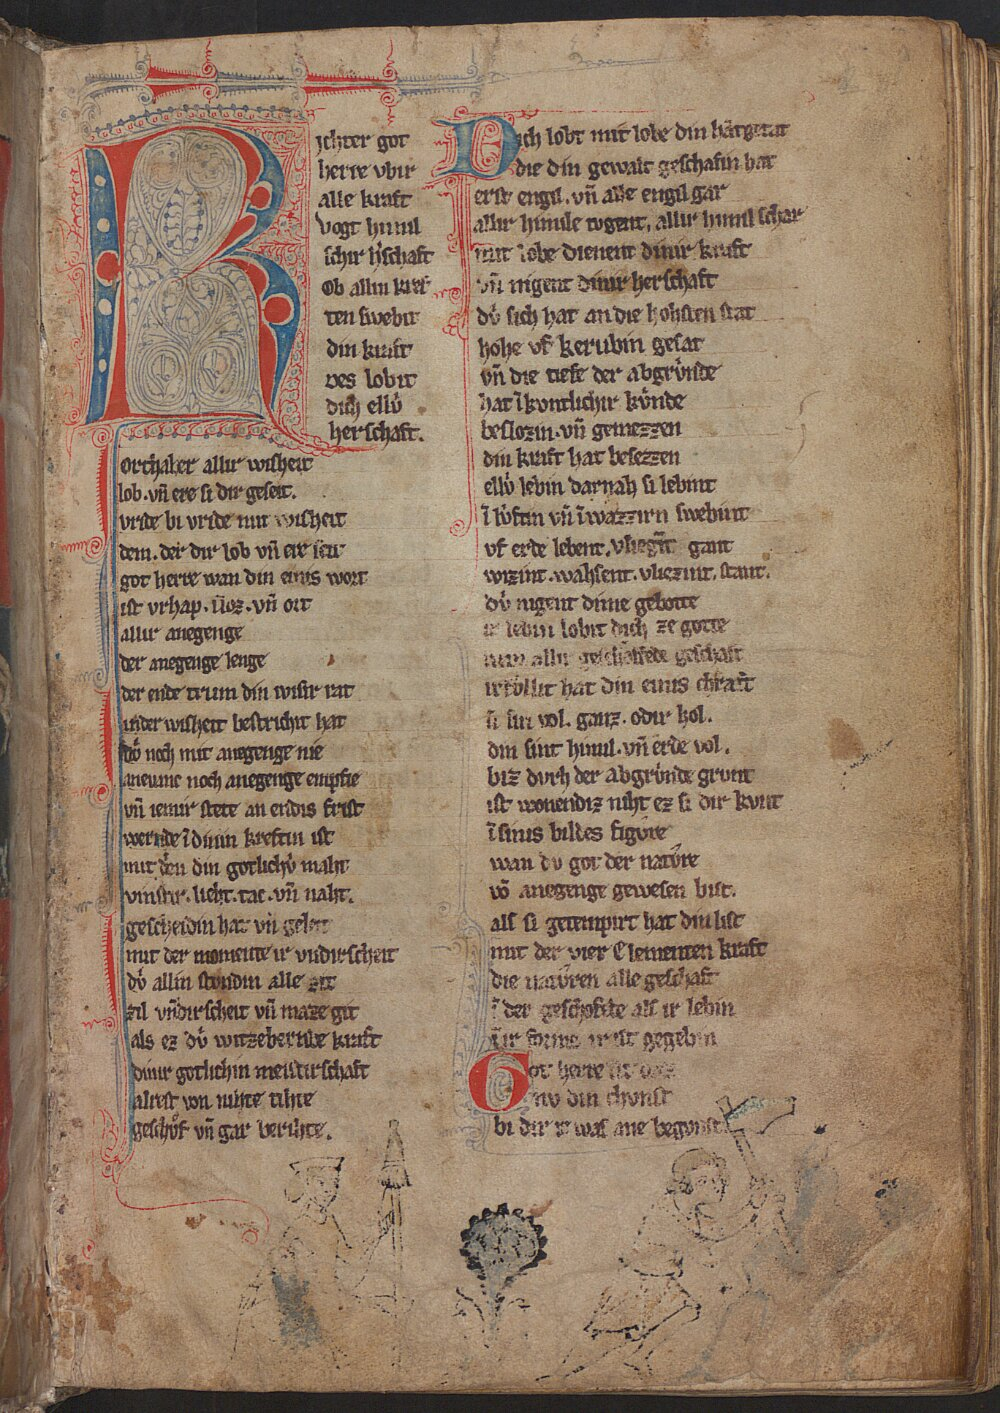 Richter got
herre vbir
alle kraft
vogt himil
schir h'schaft
ob allin kref
ten swebit
din kraft
des lobit
dich ellv̊
herschaft.
orthaber allir wisheit
lob. vn̄ ere si dir geseit.
vride bi vride mit wisheit
dem. der dir lob vn̄ ere seit
got herre wan din einis wort
ist vrhap. vn̄ ort
allir anegenge
der anegenge lenge
der ende trum din wisir rat
indir wisheit bestricht hat
dv̊ noch mit anegenge nie
noch anegenge enphie
vn̄ iemir stete an endis frist
wernde ī dinin kreftin ist
mit den din gotlichv̊ maht
vinstir. licht. tac. vn̄ naht.
gescheidin hat vn̄ geleit
mit der momente ir vndirscheit
dv̊ allin stundin alle zit
zil vn̄dirscheit vn̄ maze git
als ez dv̊ witzebernde kraft
dinir gotlichin meistirschaft
alrest von nihte tihte
geschof vn̄ gar berihte.
Dich lobt mit lobe din hantgetat
die din gewalt geschafin hat
erst engil. vn̄ alle engil gar
allir himile togent. allir himil schar
mit lobe dienent dinir kraft
vn̄ nigent dinir herschaft
dv̊ sich hat an die hohsten stat
hohe vf kerubin gesat
vn̄ die tiefe der abgrv̊nde
hat ī kvntlichir kv̊nde
beslozin. vn̄ gemezzen
din kraft hat besezzen
ellv̊ lebin darnah si lebint
ī lv̊ftin vn̄ ī wazzirn swebint
vf erde lebent. vliegīt gant
wizint. wahsent. vliezint. stant.
dv̊ nigent dime gebotte
ir lebin lobit dich ze gotte
allir geschoffede geschaft
irfv̊llit hat din einis chraft
si sin vol. ganz. odir hol.
din sint himil. vn̄ erde vol.
biz dvrh der abgrv̊nde grvnt
ist wonendiz niht ez si dir kvnt
ī sinis bildes figv̊re
wan dv got der natv̊re
vō anegenge gewesen bist.
als si getempirt hat din list
mit der vier Elementen kraft
die natv̊ren alle geschaft
ī der geschofede als ir lebin
ī ir forme ir ist gegebin
Got herre sit daz
nv din chvnst
bi dir ie was ane begvnst